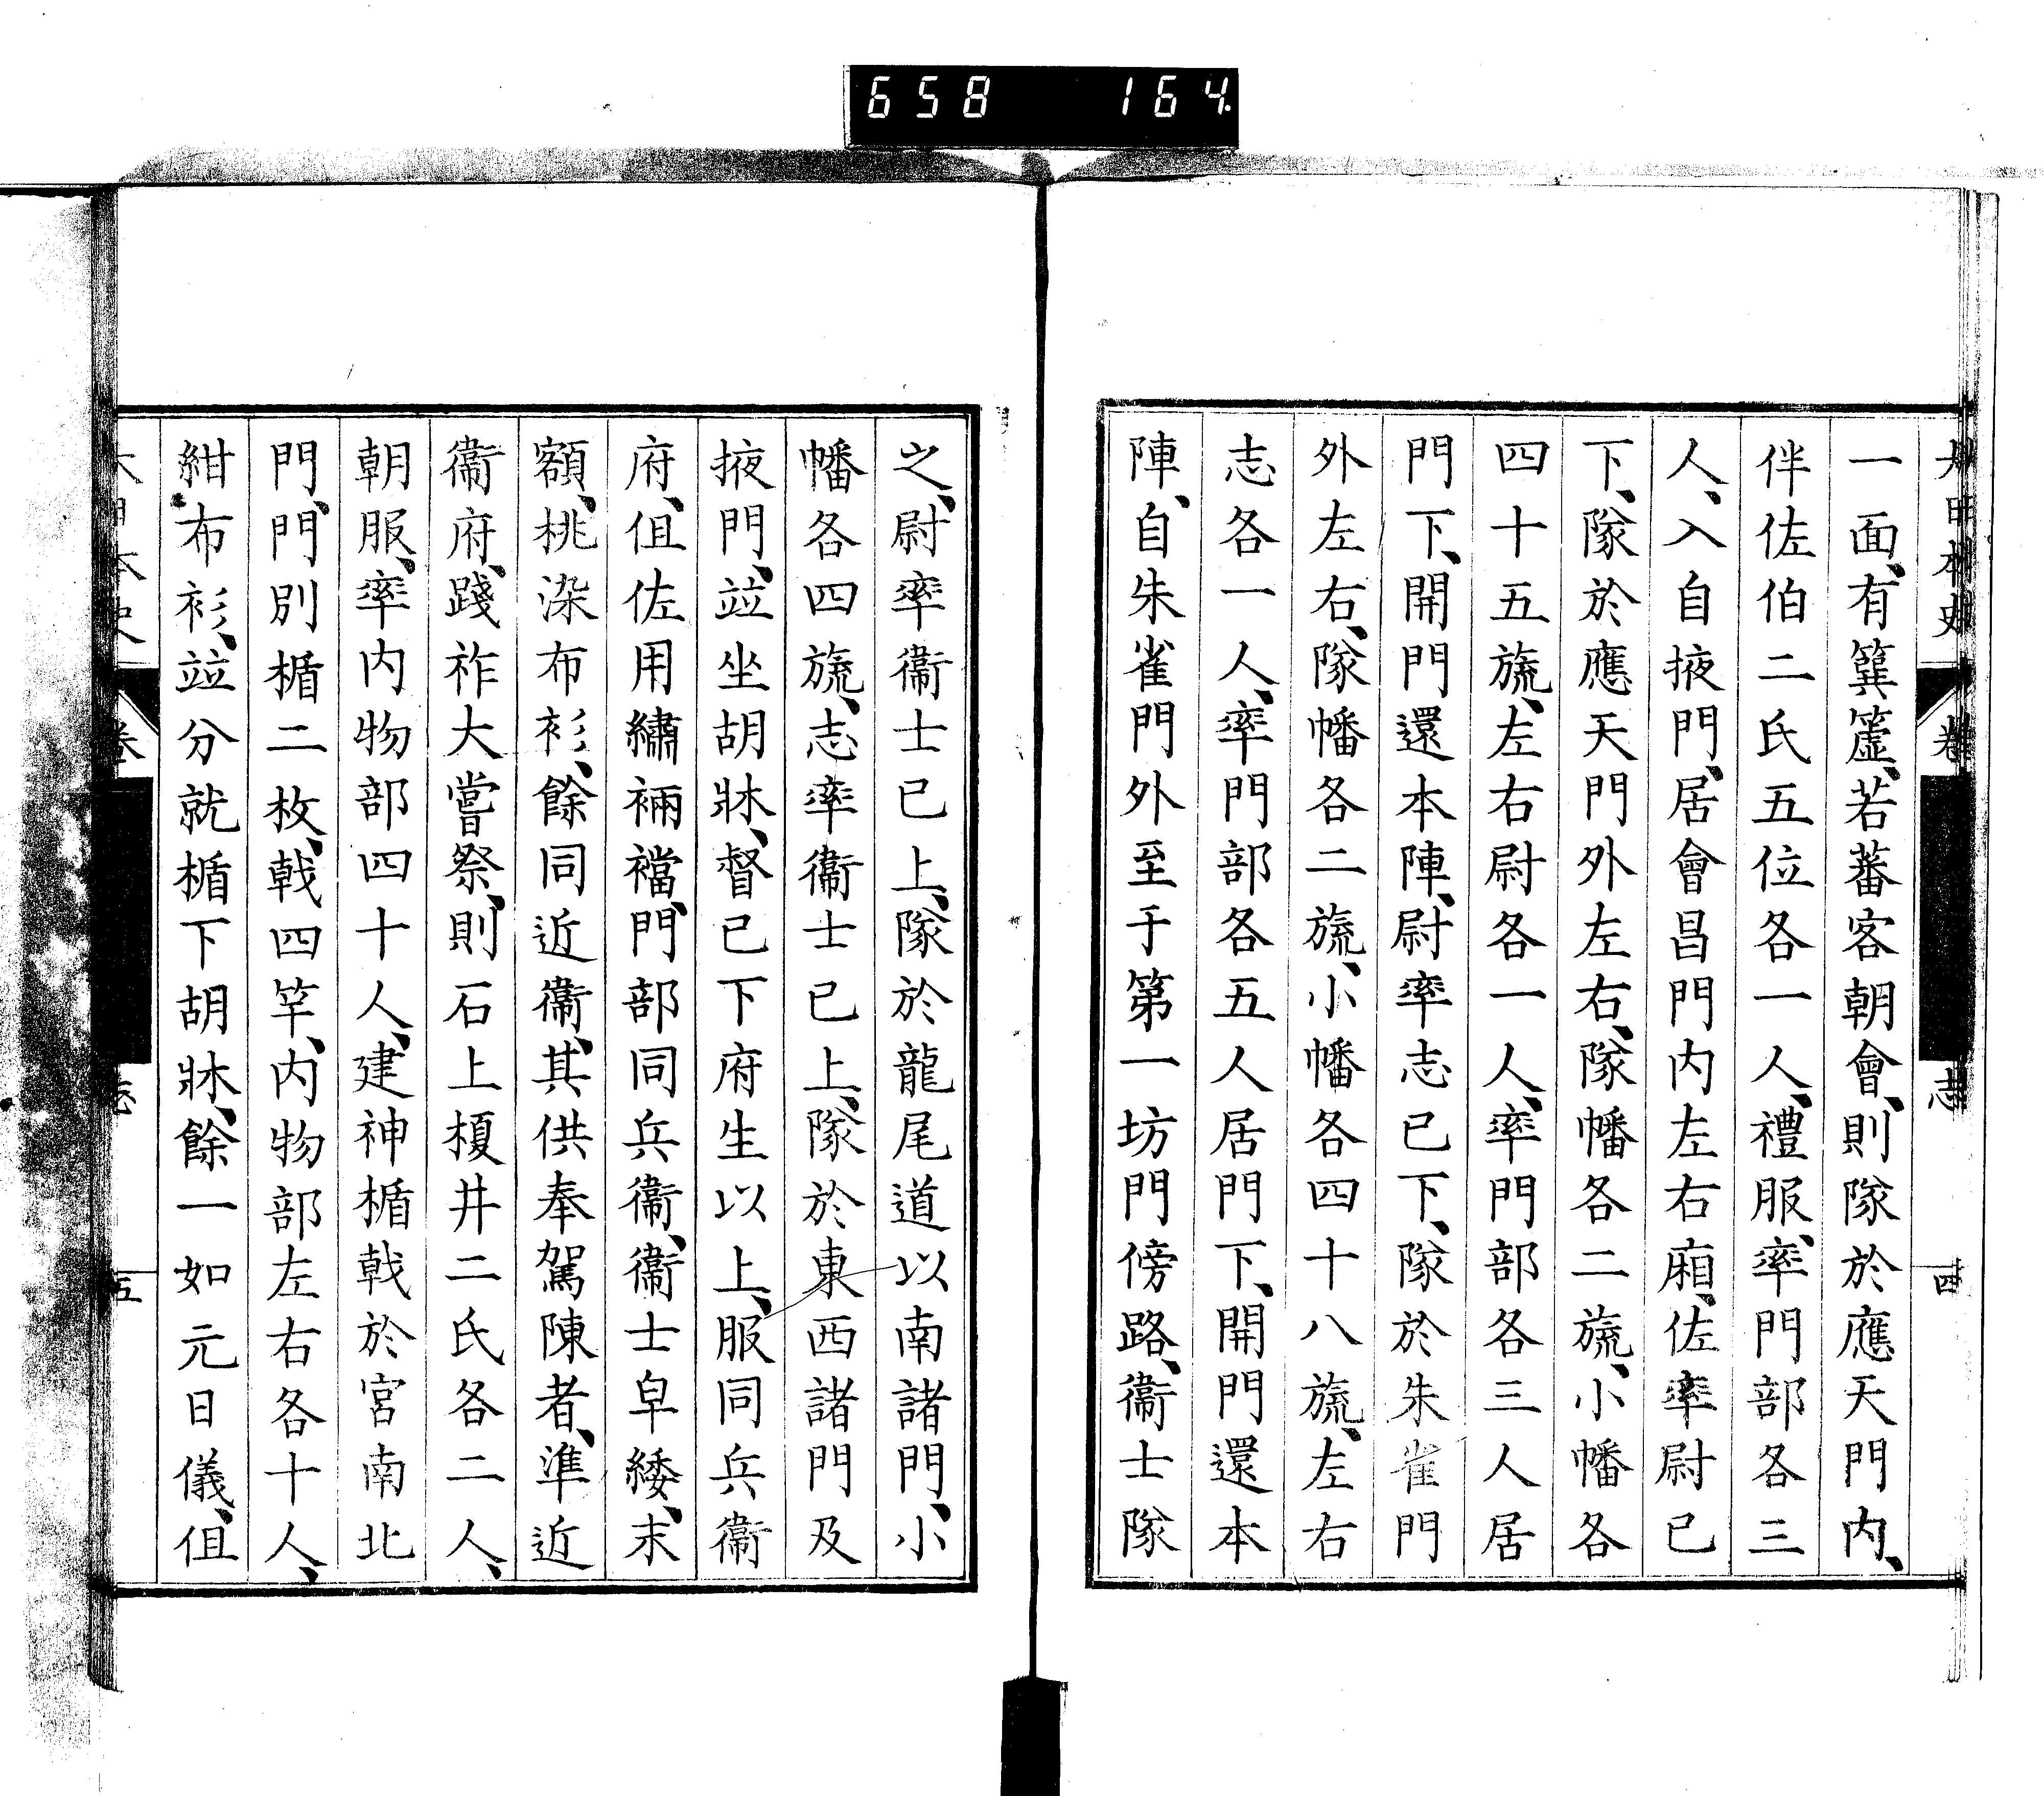 658 164
大日本史 卷 志 四
一面、有簨簴、若蕃客朝會、則隊於應天門內、
伴佐伯二氏五位各一人、禮服、率門部各三
人、入自掖門、居會昌門内左右廂、佐率尉已
下、隊於應天門外左右、隊幡各二旒、小幡各
四十五旒、左右尉各一人、率門部各三人居
門下、開門還本陣、尉率志已下、隊於朱雀門
外左右、隊幡各二旒、小幡各四十八旒、左右
志各一人、率門部各五人居門下、開門還本
陣、自朱雀門外至于第一坊門傍路、衞士隊
之、尉率衞士已上、隊於龍尾道以南諸門、小
幡各四旒、志率衞士已上、隊於東西諸門及
掖門、竝坐胡牀、督已下府生以上、服同兵衞
府、但佐用繡裲襠、門部同兵衞、衞士皁緌、末
額、桃染布衫、餘同近衞、其供奉駕陳者、準近
衞府、踐祚大嘗祭、則石上榎井二氏各二人、
朝服、率内物部四十人、建神楯戟於宮南北
門、門別楯二枚、戟四竿、内物部左右各十人、
紺布衫、竝分就楯下胡牀、餘一如元日儀、但
大日本史 卷 志 五